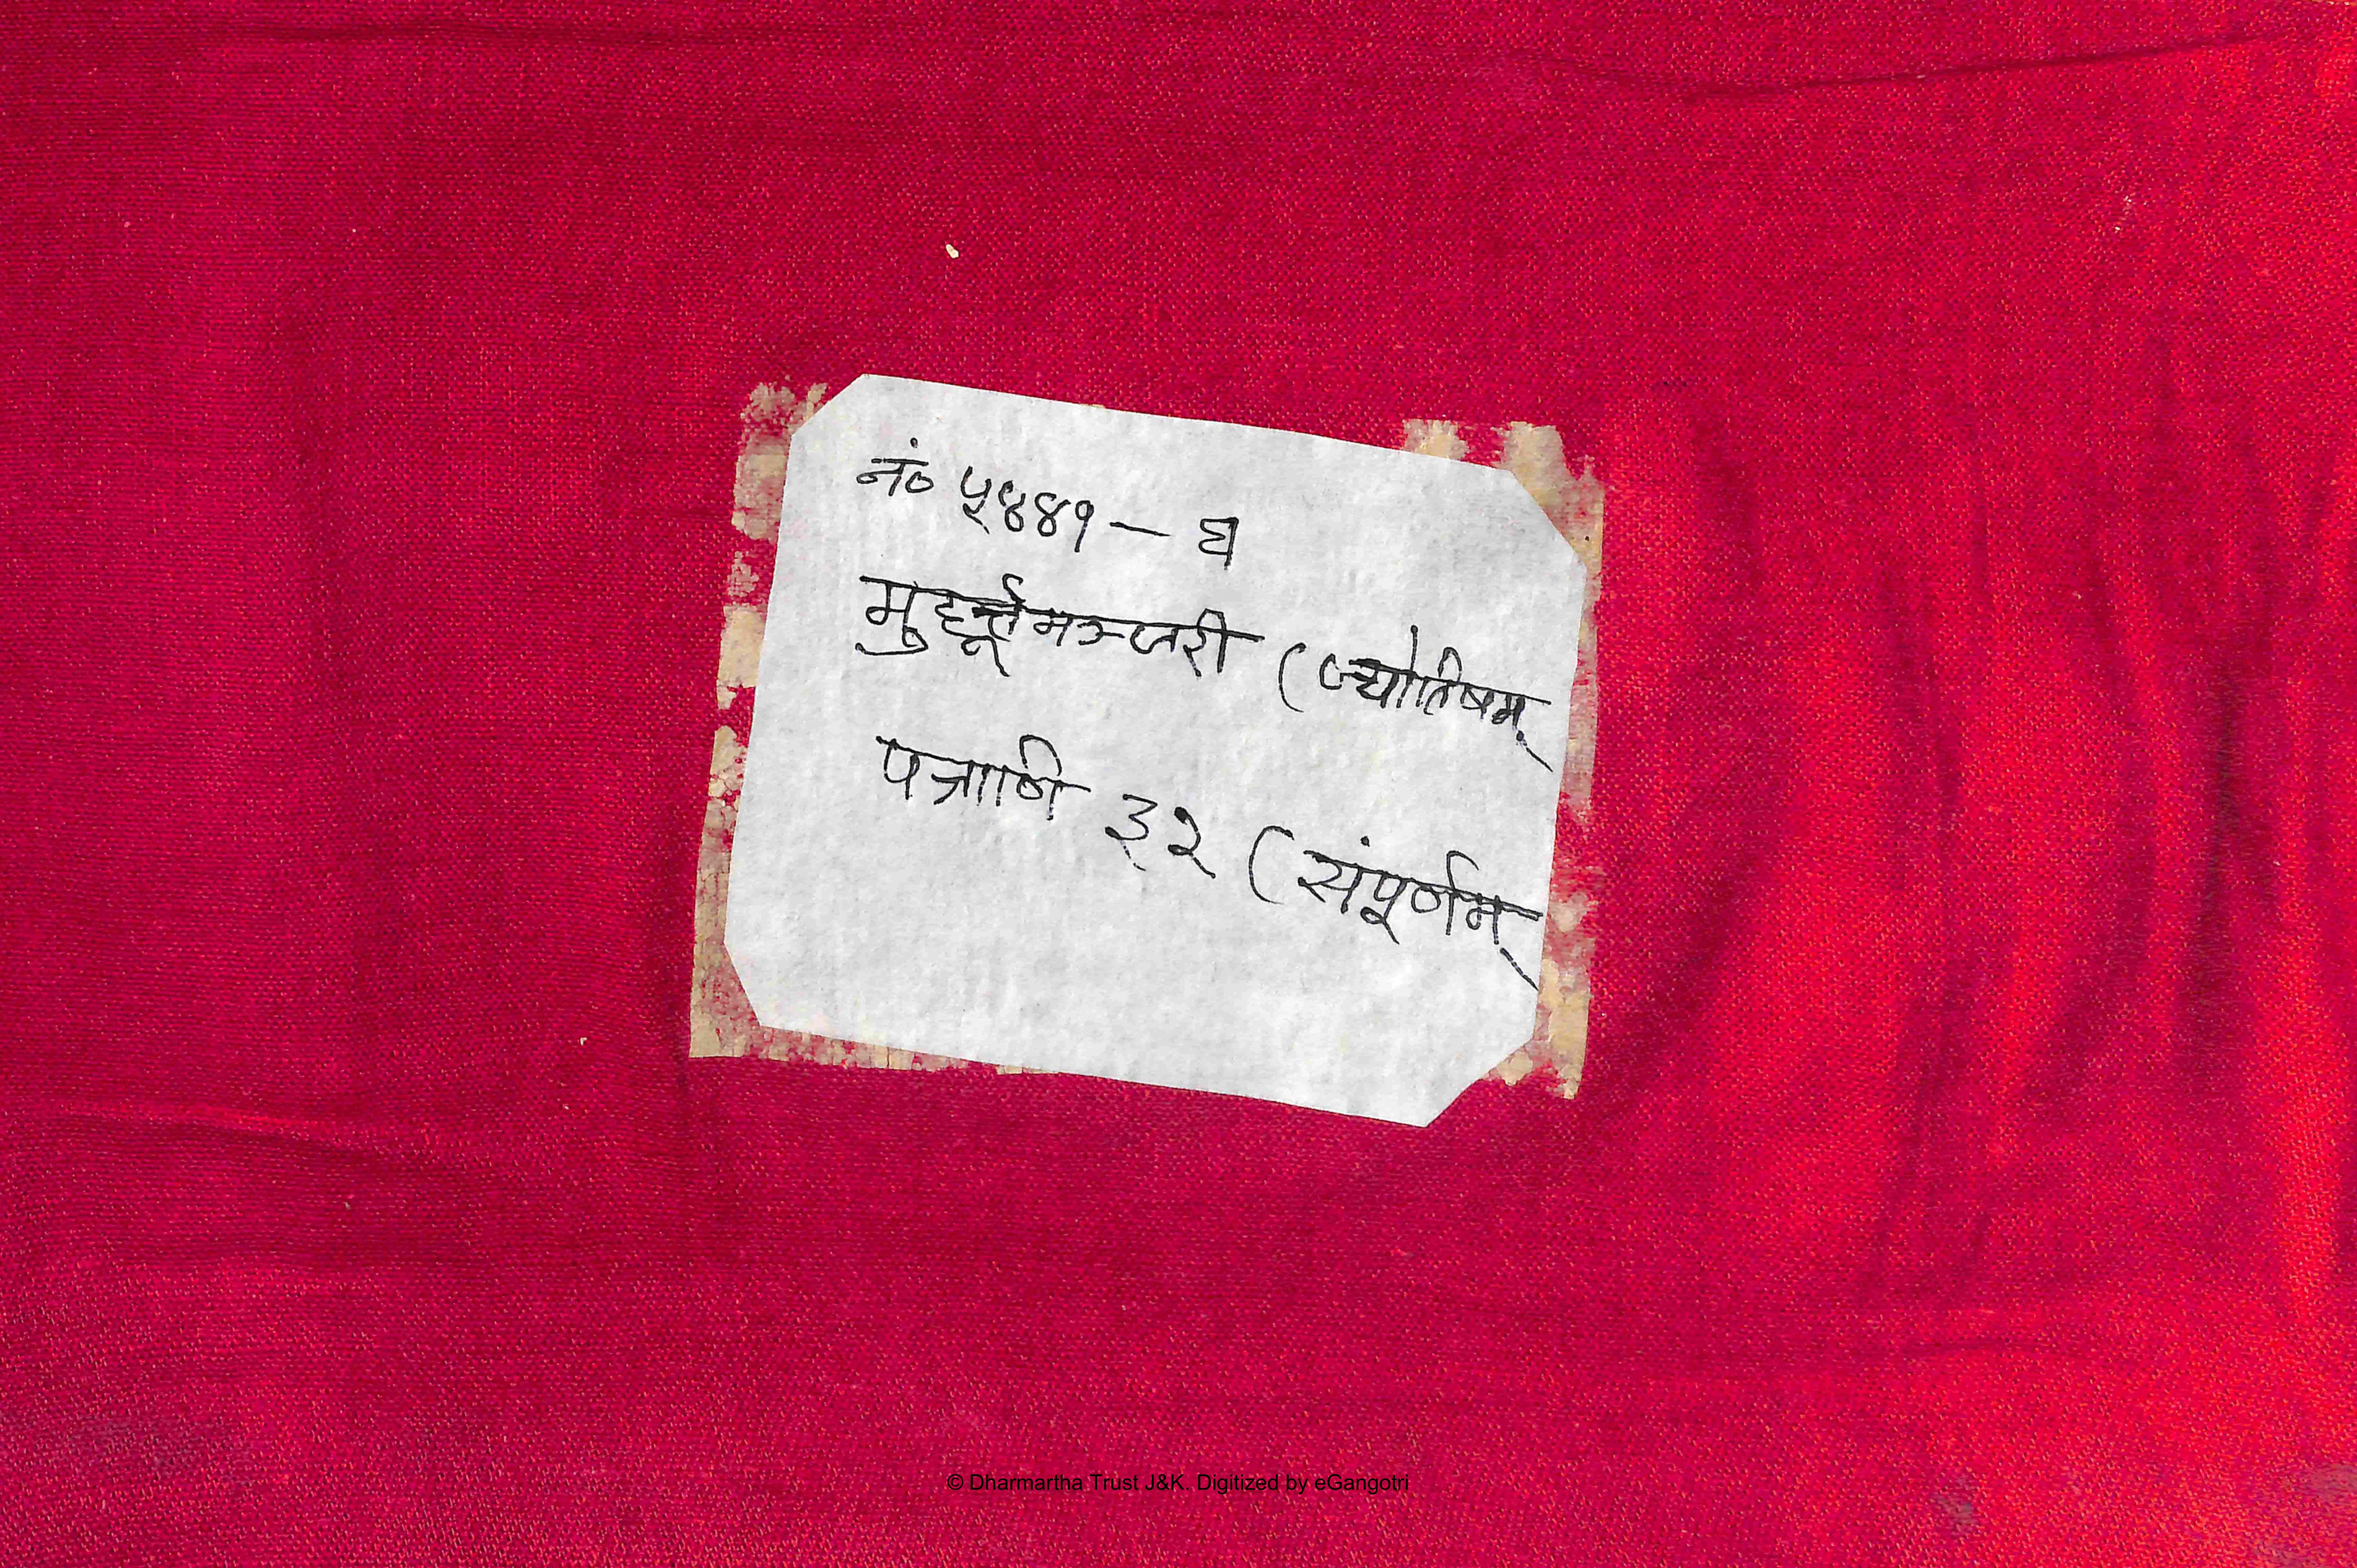 नं० ५४४१ — घ
मुहूर्त्तमञ्जरी (ज्योतिषम्
पत्राणि ३२ (संपूर्णम्
© Dharmartha Trust J&K. Digitized by eGangotri